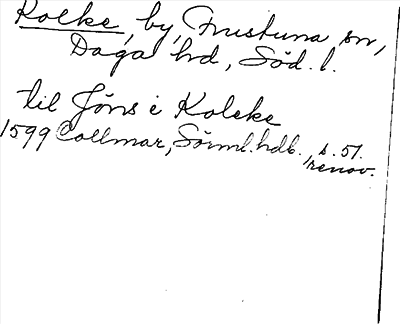 Kolke, by, Frustuna sn,
Daga hd, Söd. l.
til Jöns i Kolcke
1599 Collmar, Sörml. hdl., s. 51.
renov.